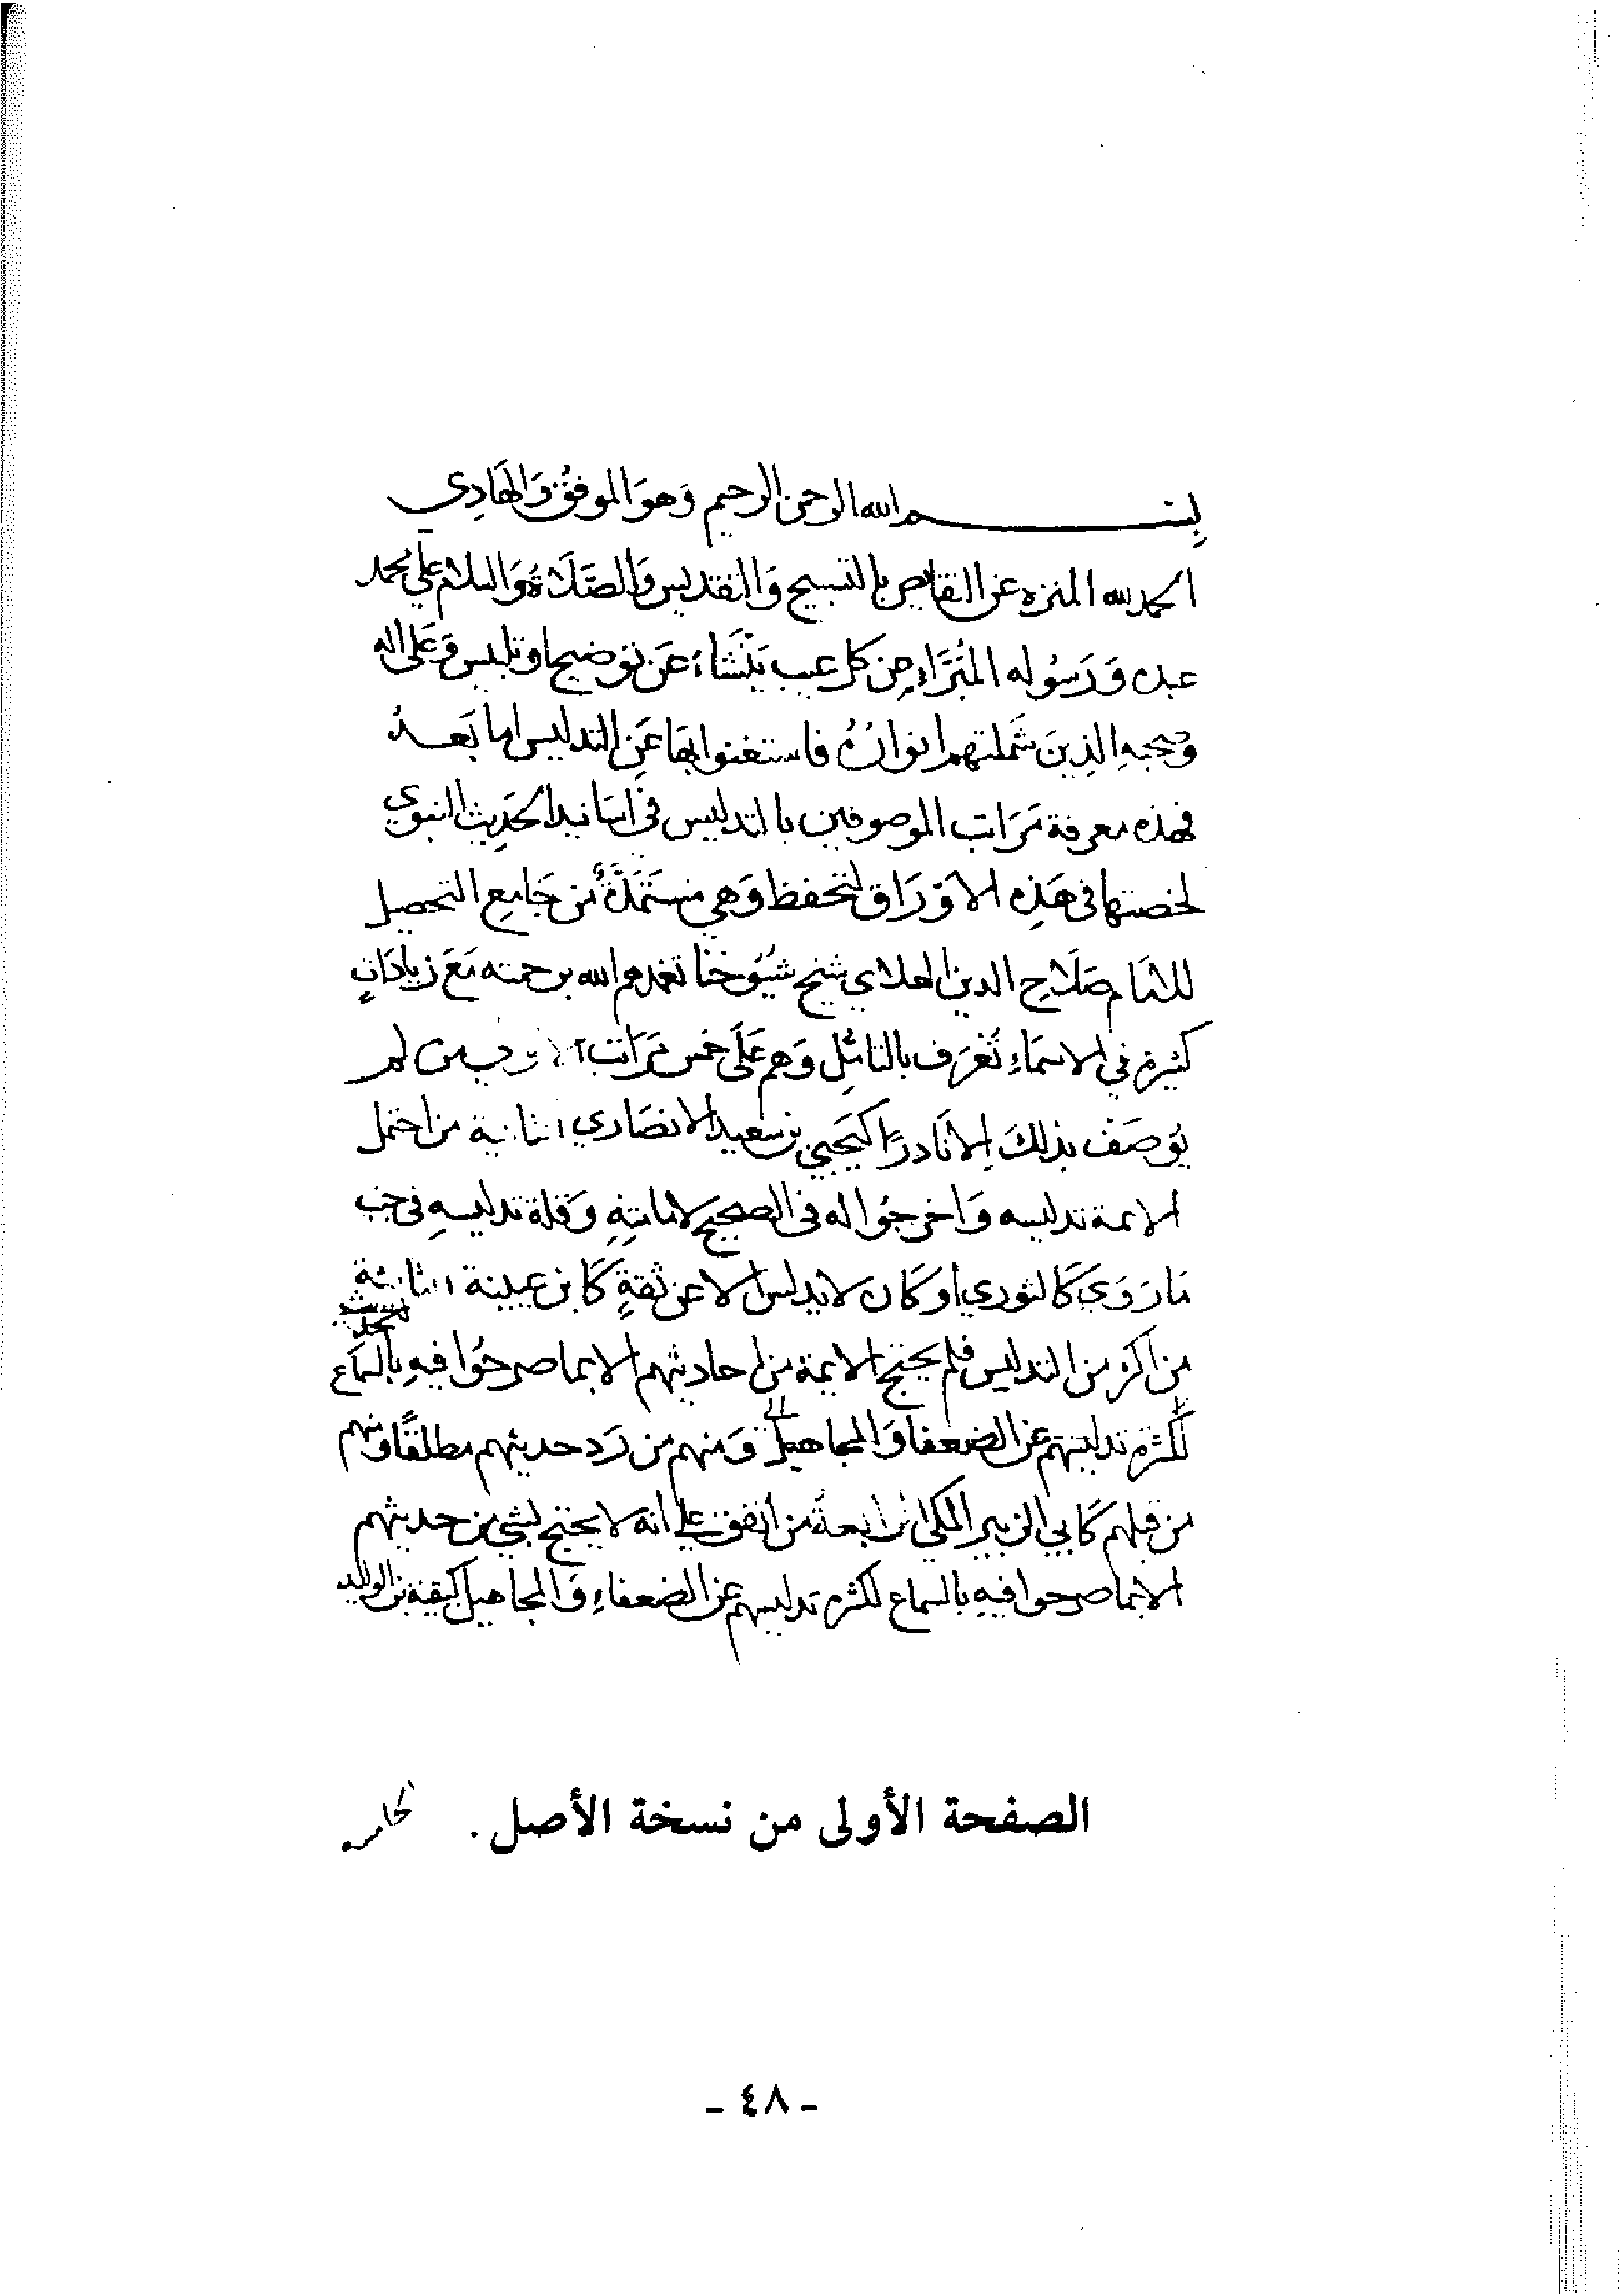 بسم الله الرحمن الرحيم وَهوَ الموفق وَالهَادِي
الحمد لله المنزه عَن النقايص بالتسبيح وَالتقديس وَالصَّلَاةُ وَالسلام علي محمد
عبده وَرَسُوله المُبَرَّاءِ مِن كل عيب يَنْشَاءُ عَن توضيح او تلبيس وَعَلى اله
وصحبهِ الذِينَ شَملتهم انوارُهُ فاستغنوا بهَا عَنِ التدليس اما بَعــدُ
فهذه معرفة مَرَاتب الموصوفين بالتدليس في اسَانيد الحَدِيث النبوي
لخصتها في هَذِه الاوْرَاق لتحفظ وَهي مستَمَدَّةٌ من جَامِع التحصيل
للامَام صَلَاح الدين العلاي شيخ شُيُوخنَا تغمدهم الله برحمته مَعَ زيادَاتٍ
كثيرة في الاسمَاءِ تُعْرَف بالتأمُّلِ وَهم عَلَى خمس مَرَاتب الاولى من لم
يُوصَفْ بذلكَ الا نَادرًا كيَحيى بن سَعيد الانصَاري الثانية من احتمل
الايمة تدليسه وَاخرجُوا له في الصحيح لامَامَتِهِ وَقلة تدليسهِ في جنب
مَا رَوَي كَالثوري او كَان لا يدلس الا عن ثقةٍ كَابن عيينة الثالثة
من اكثر من التدليس فلم يحتج الايمة من احاديثهم الا بما صرحُوا فيهِ بالسَماع
لكثرة تدليسهم عن الضعفا وَالمجاهيل وَمنهم من رَد حديثهم مطلقًا وَمنهم
من قبلهم كَابي الزبير المكي الرابعة من اتفق علي انه لا يحتج بشي من حديثهم
الا بما صرحوا فيهِ بالسماع لكثرة تدليسهم عن الضعفاءِ وَالمجاهيل كبقية بن الوليد
الصفحة الأولى من نسخة الأصل.
- ٤٨ -